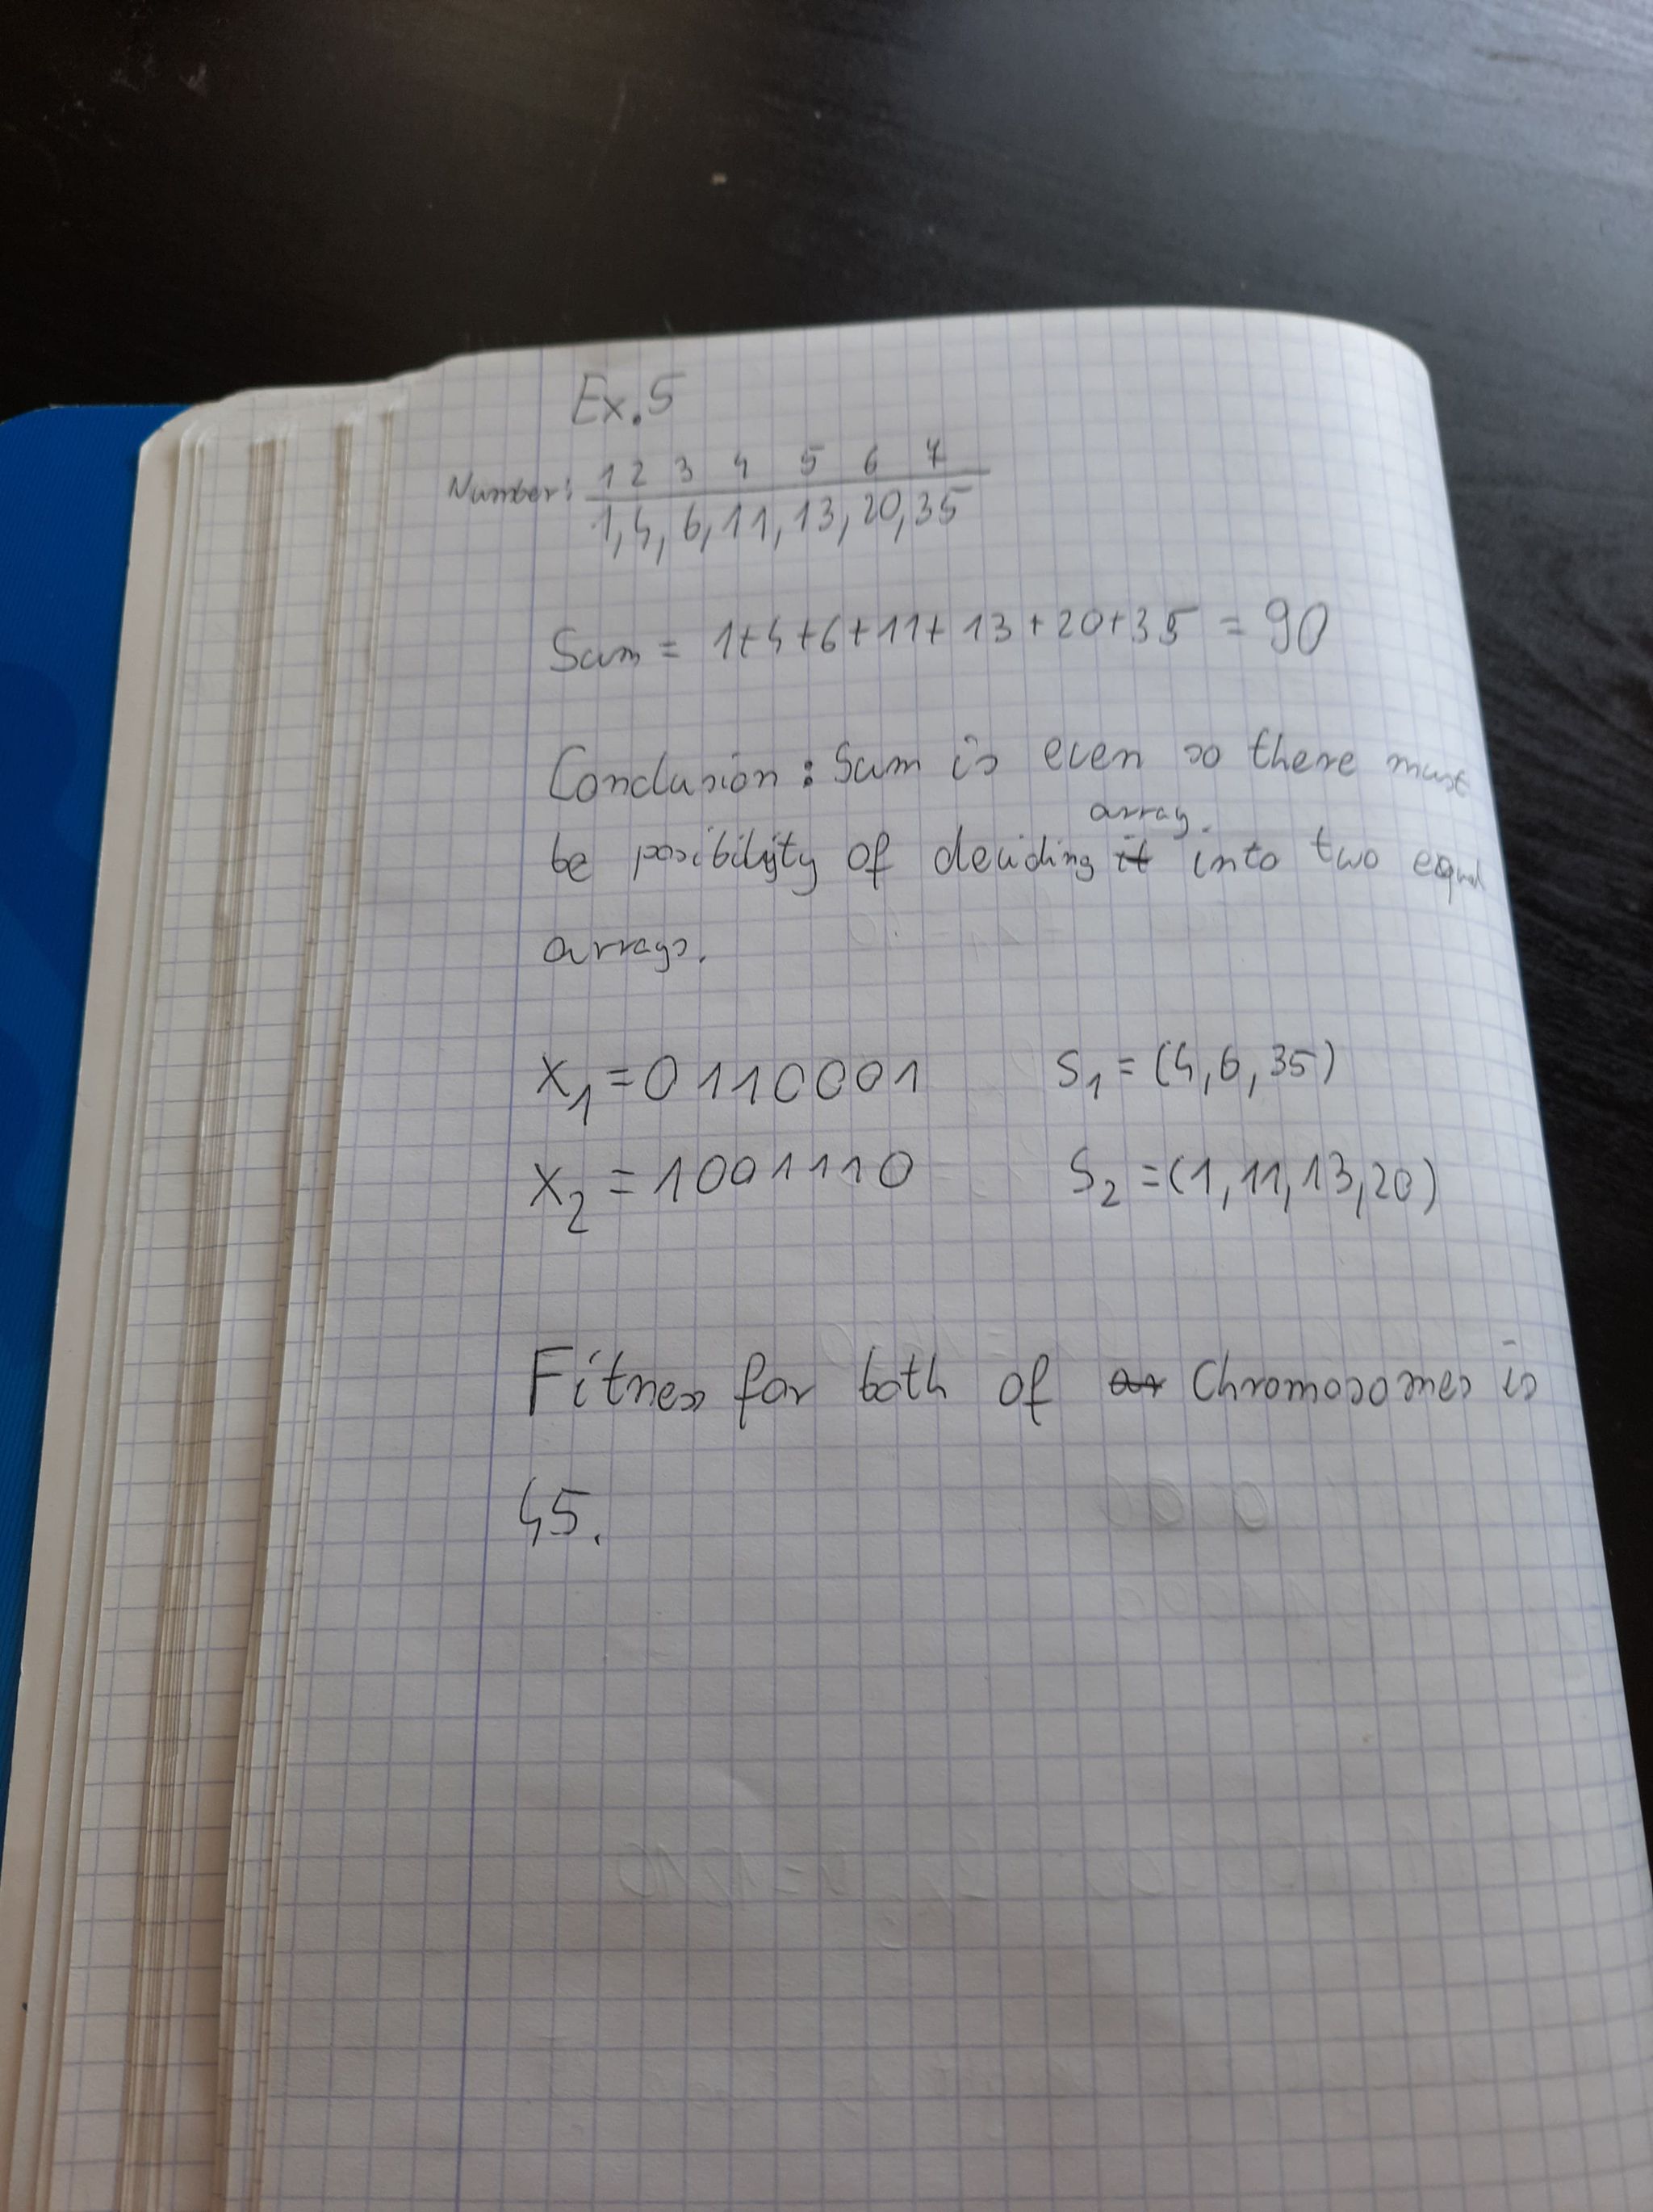 Ex.5
Number: 1 2 3 4 5 6 7
1, 4, 6, 11, 13, 20, 35
Sum = 1+4+6+11+13+20+35 = 90
Conclusion: Sum is even so there must
array
be posibility of deciding it into two equal
arrays.
x1 = 0110001 S1 = (4, 6, 35)
x2 = 1001110 S2 = (1, 11, 13, 20)
Fitness for both of Chromosomes is
45.